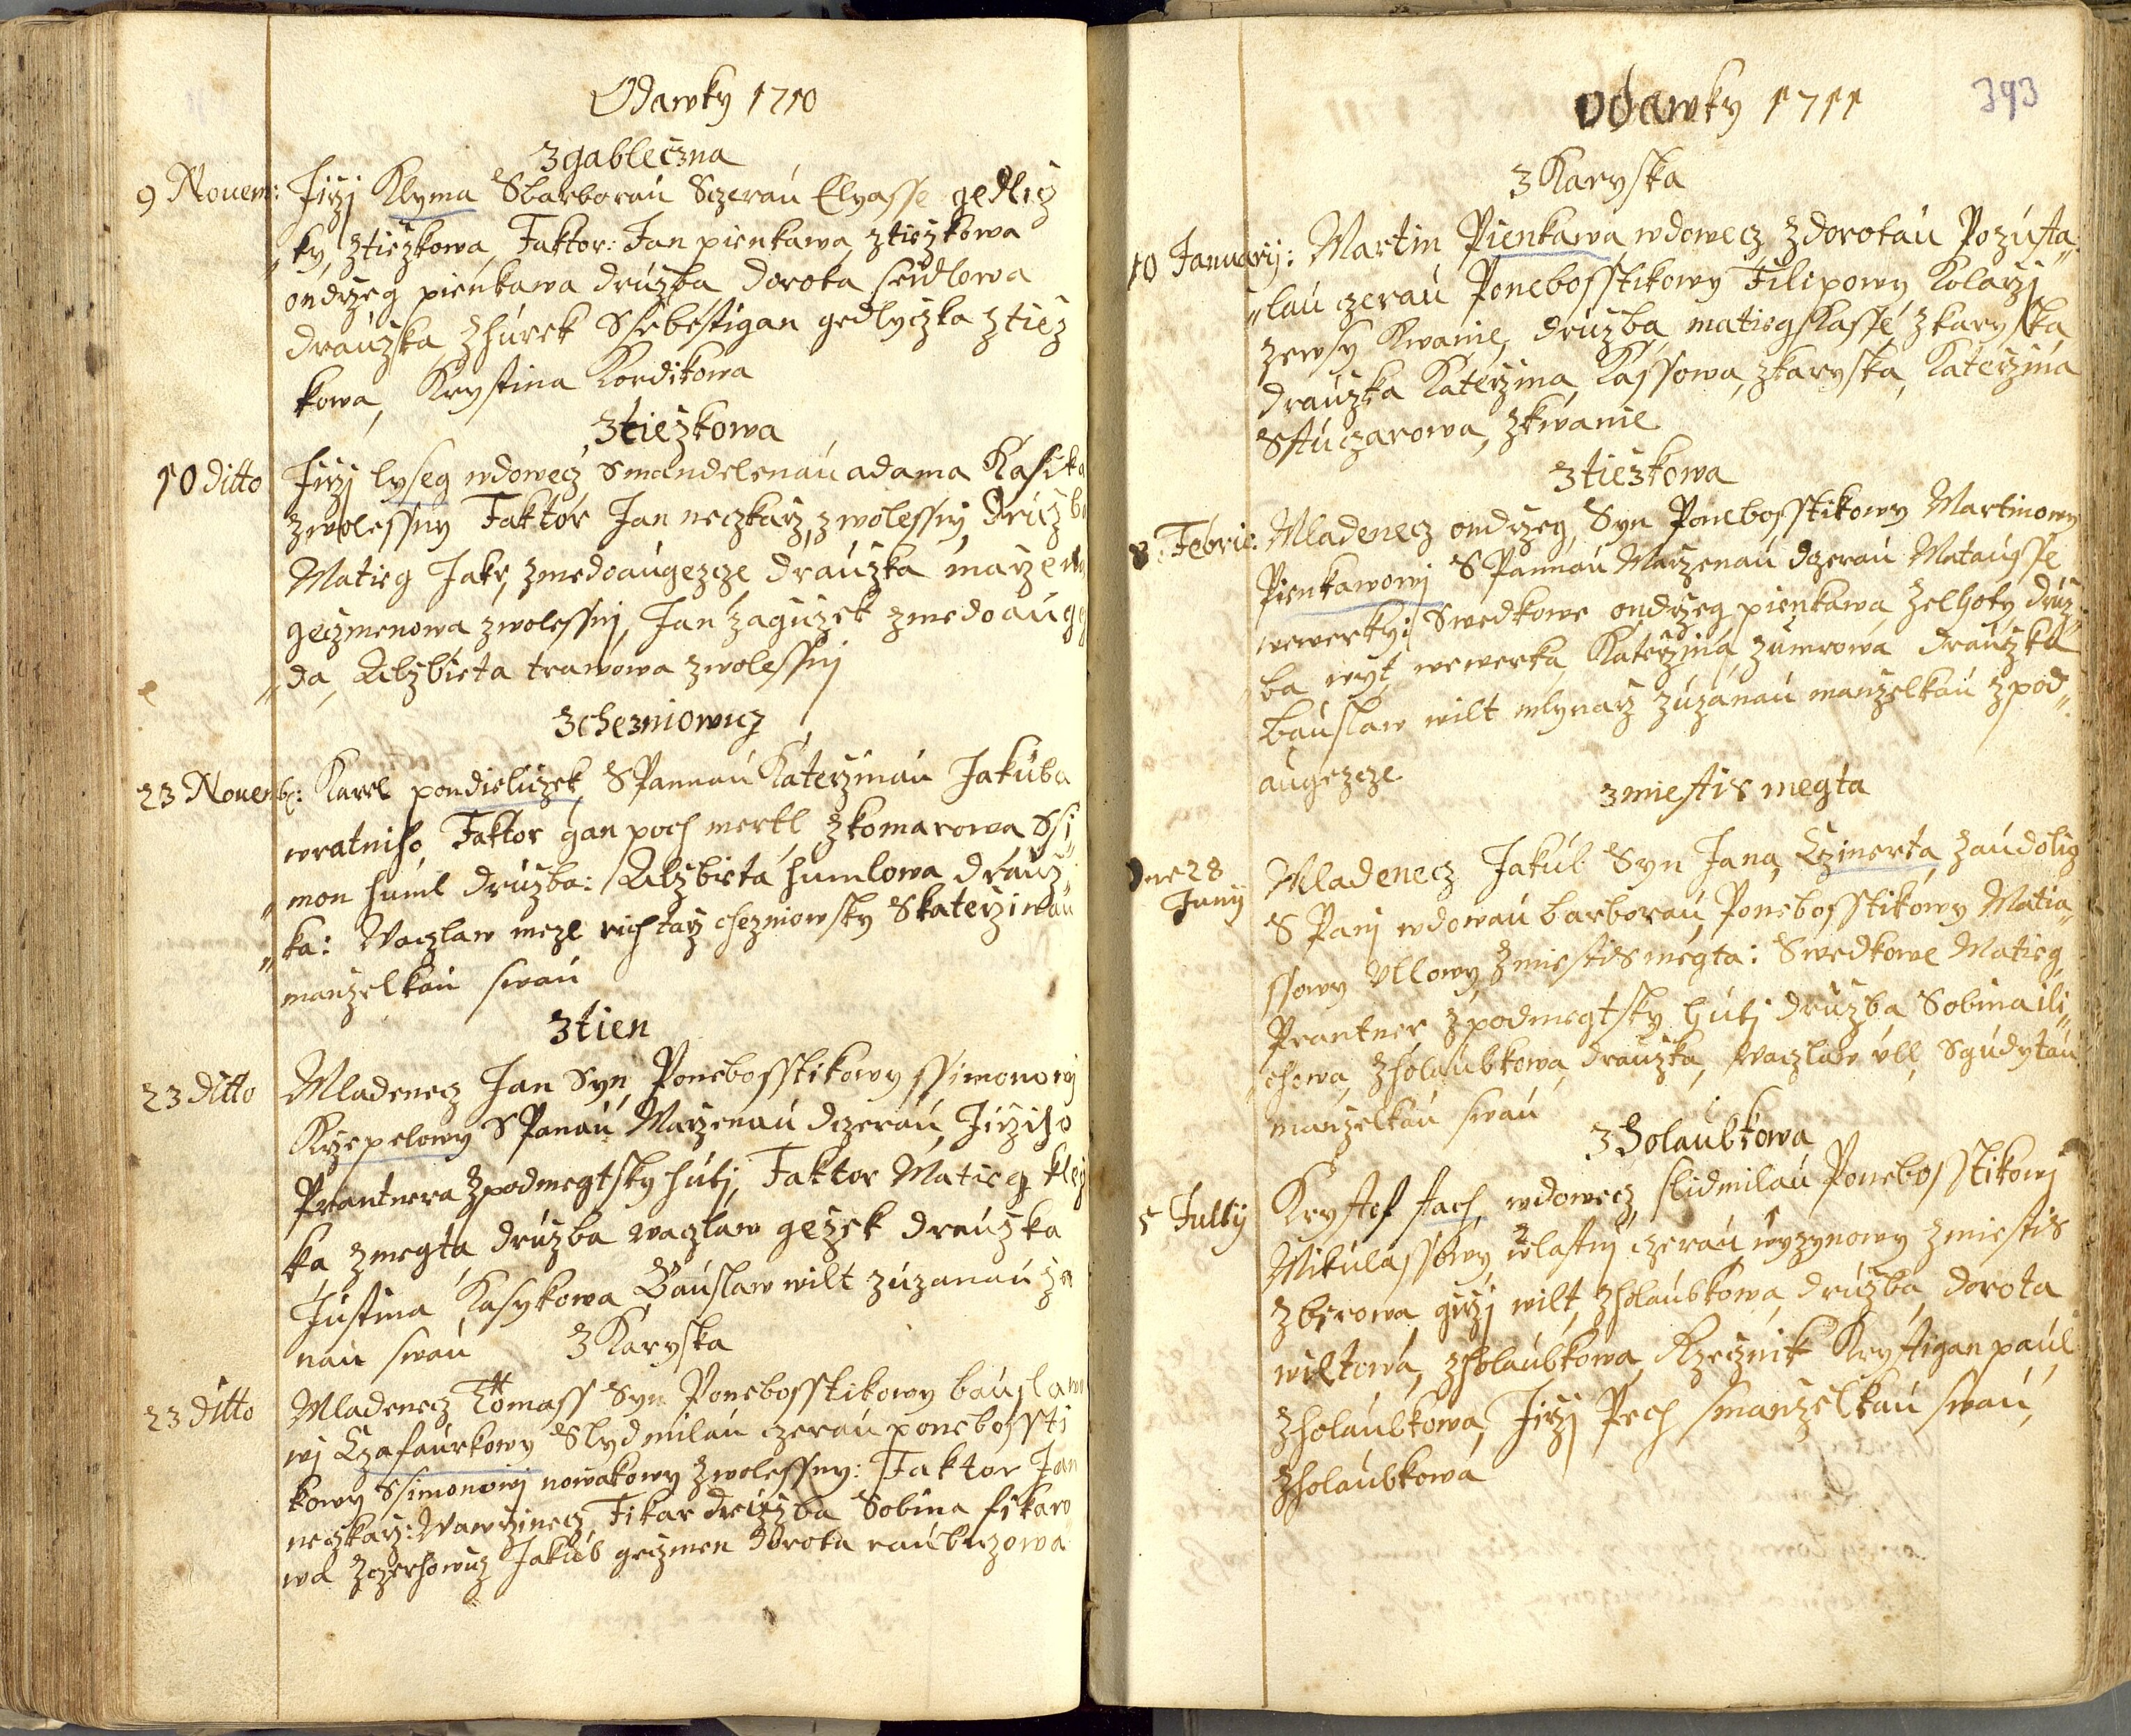 Odawky 1710
Zgableczna
9 Novem: Jirzj Klyma Sbarborau Sczerau Elyasse gedlicz
ky, ztiezkowa, Faktor: Jan pienkawa ztiezkowa
ondrzeg pienkawa druzba dorota seidlowa
drauzka, zhurek Ssebestigan gedlyczka ztiez
kowa, Krystina Kordikowa
Ztiezkowa
10 ditto Jirzj lyseg wdowecz Smandelenau adama Kasika
zwolessny Faktor Jan neczkarz, zwolessny, druzba
Matieg Jakr, zmedoaugezcze drauzka marzena
geczmenowa zwolessnj, Jan zaguzek zmedoaug
da, Alzbieta trawowa zwolessnj
Zchezniowicz
23 Novemb: Karel pondieliczek, SPannau Katerzinau Jakuba
wratniho, Faktor gan poch mertl, zkomarowa, Ssi
mon huml druzba: Alzbieta humlowa drauz
ka: Waczlaw mezl richtarz chezniowsky Skaterzinau
manzelkau swau
Ztien
23 ditto Mladenecz Jan Syn Ponebosstikowy ssimonowj
Krzepelowy SPanau Marzenau dczerau, Jirziho
Prantnera zpodmegtsky hutj, Faktor Matieg kley
ka zmegta, druzba waczlaw gezek drauzka
Justina Kasykowa Bauslaw wilt zuzanau ze
nau swau
Z Karyska
23 ditto Mladenecz Tomass Syn Ponebosstikowy bauslaw
wj Czafaurkowy Slydmilau czerau ponebossti
kowy Ssimonowj nowakowy zwolessny: Faktor Jan
neczkarz: Wawrzinecz Fikar druzba Sobina fikaro
wa zczerhowicz Jakub geczmen dorota raubizowa
odawky 1711
393
Z Karyska
10 Januarij: Martin Pienkawa wdowecz zdorotau Pozusta
lau czerau Ponebosstikowy Filipowy Kolarzj
zewsy Kwanie, druzba matieg Kasse, zkaryska
drauzka Katerzina Kassowa, zkaryska, Katerzina
Sstuczarowa, zkwanie
Ztiezkowa
8 Febru: Mladenecz ondrzeg, Syn Ponebosstikowy Martinowy
Pienkawowj SPannau Marzenau dczerau Matausse
wewerky: Swedkowe ondrzeg pienkawa zelhoty druz
ba wyt wewerka, Katerzina zumrowa drauzka
bauslaw wilt mlynarz zuzanau manzelkau zpod
augezcze
zmiestis megta
Dne 28 Juny Mladenecz Jakub Syn Jana, Czinerta, zaudolig
S Panj wdowau barborau, Ponebosstikowy Matia
ssowy Ullowy zmiestis megta: Swedkowe Matieg
Prantner zpodmegtsky hutj druzba Sobina ili
chowa, zholaubkowa drauzka, Waczlaw ull, Sgudytau
manzelkau swau
Z Holaubkowa
5 Jully Krystof stach, wdowecz, slidmilau Ponebosstikowj
Mikulassowy wlastnj czerau wyzynowy zmiestis
zberowa girzj wilt, zholaubkowa druzba dorota
wiltowa, zholaubkowa, Rzecznik Krystigan paul
zholaubkowa, Jirzj Pech smanzelkau swau,
zholaubkowa